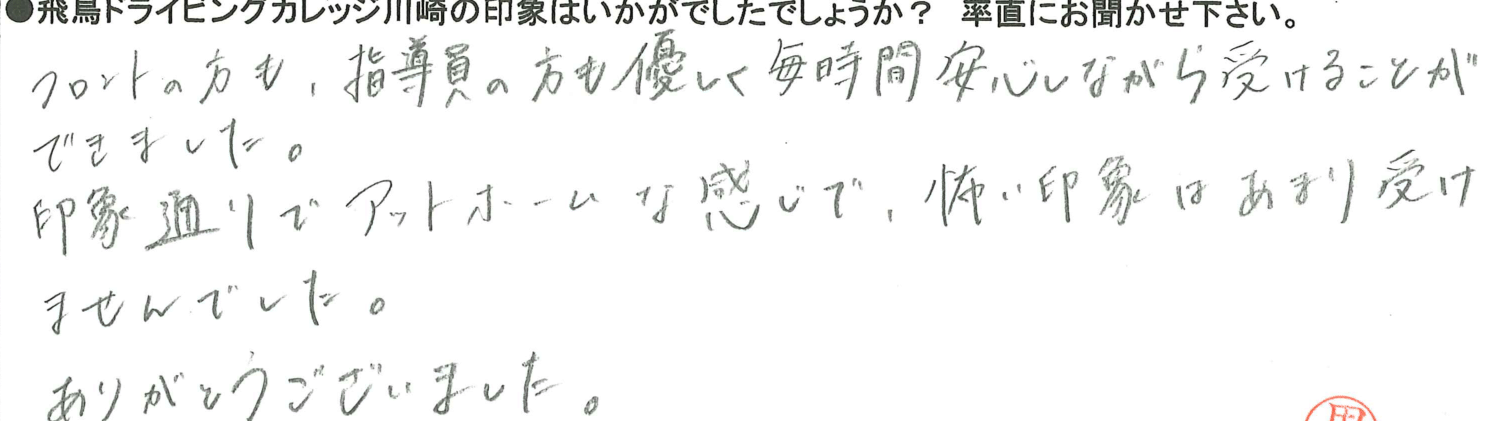 ●飛鳥ドライビングカレッジ川崎の印象はいかがでしたでしょうか？ 率直にお聞かせ下さい。
フロントの方も、指導員の方も優しく毎時間安心しながら受けることが
できました。
印象通りでアットホームな感じで、怖い印象はあまり受け
ませんでした。
ありがとうございました。